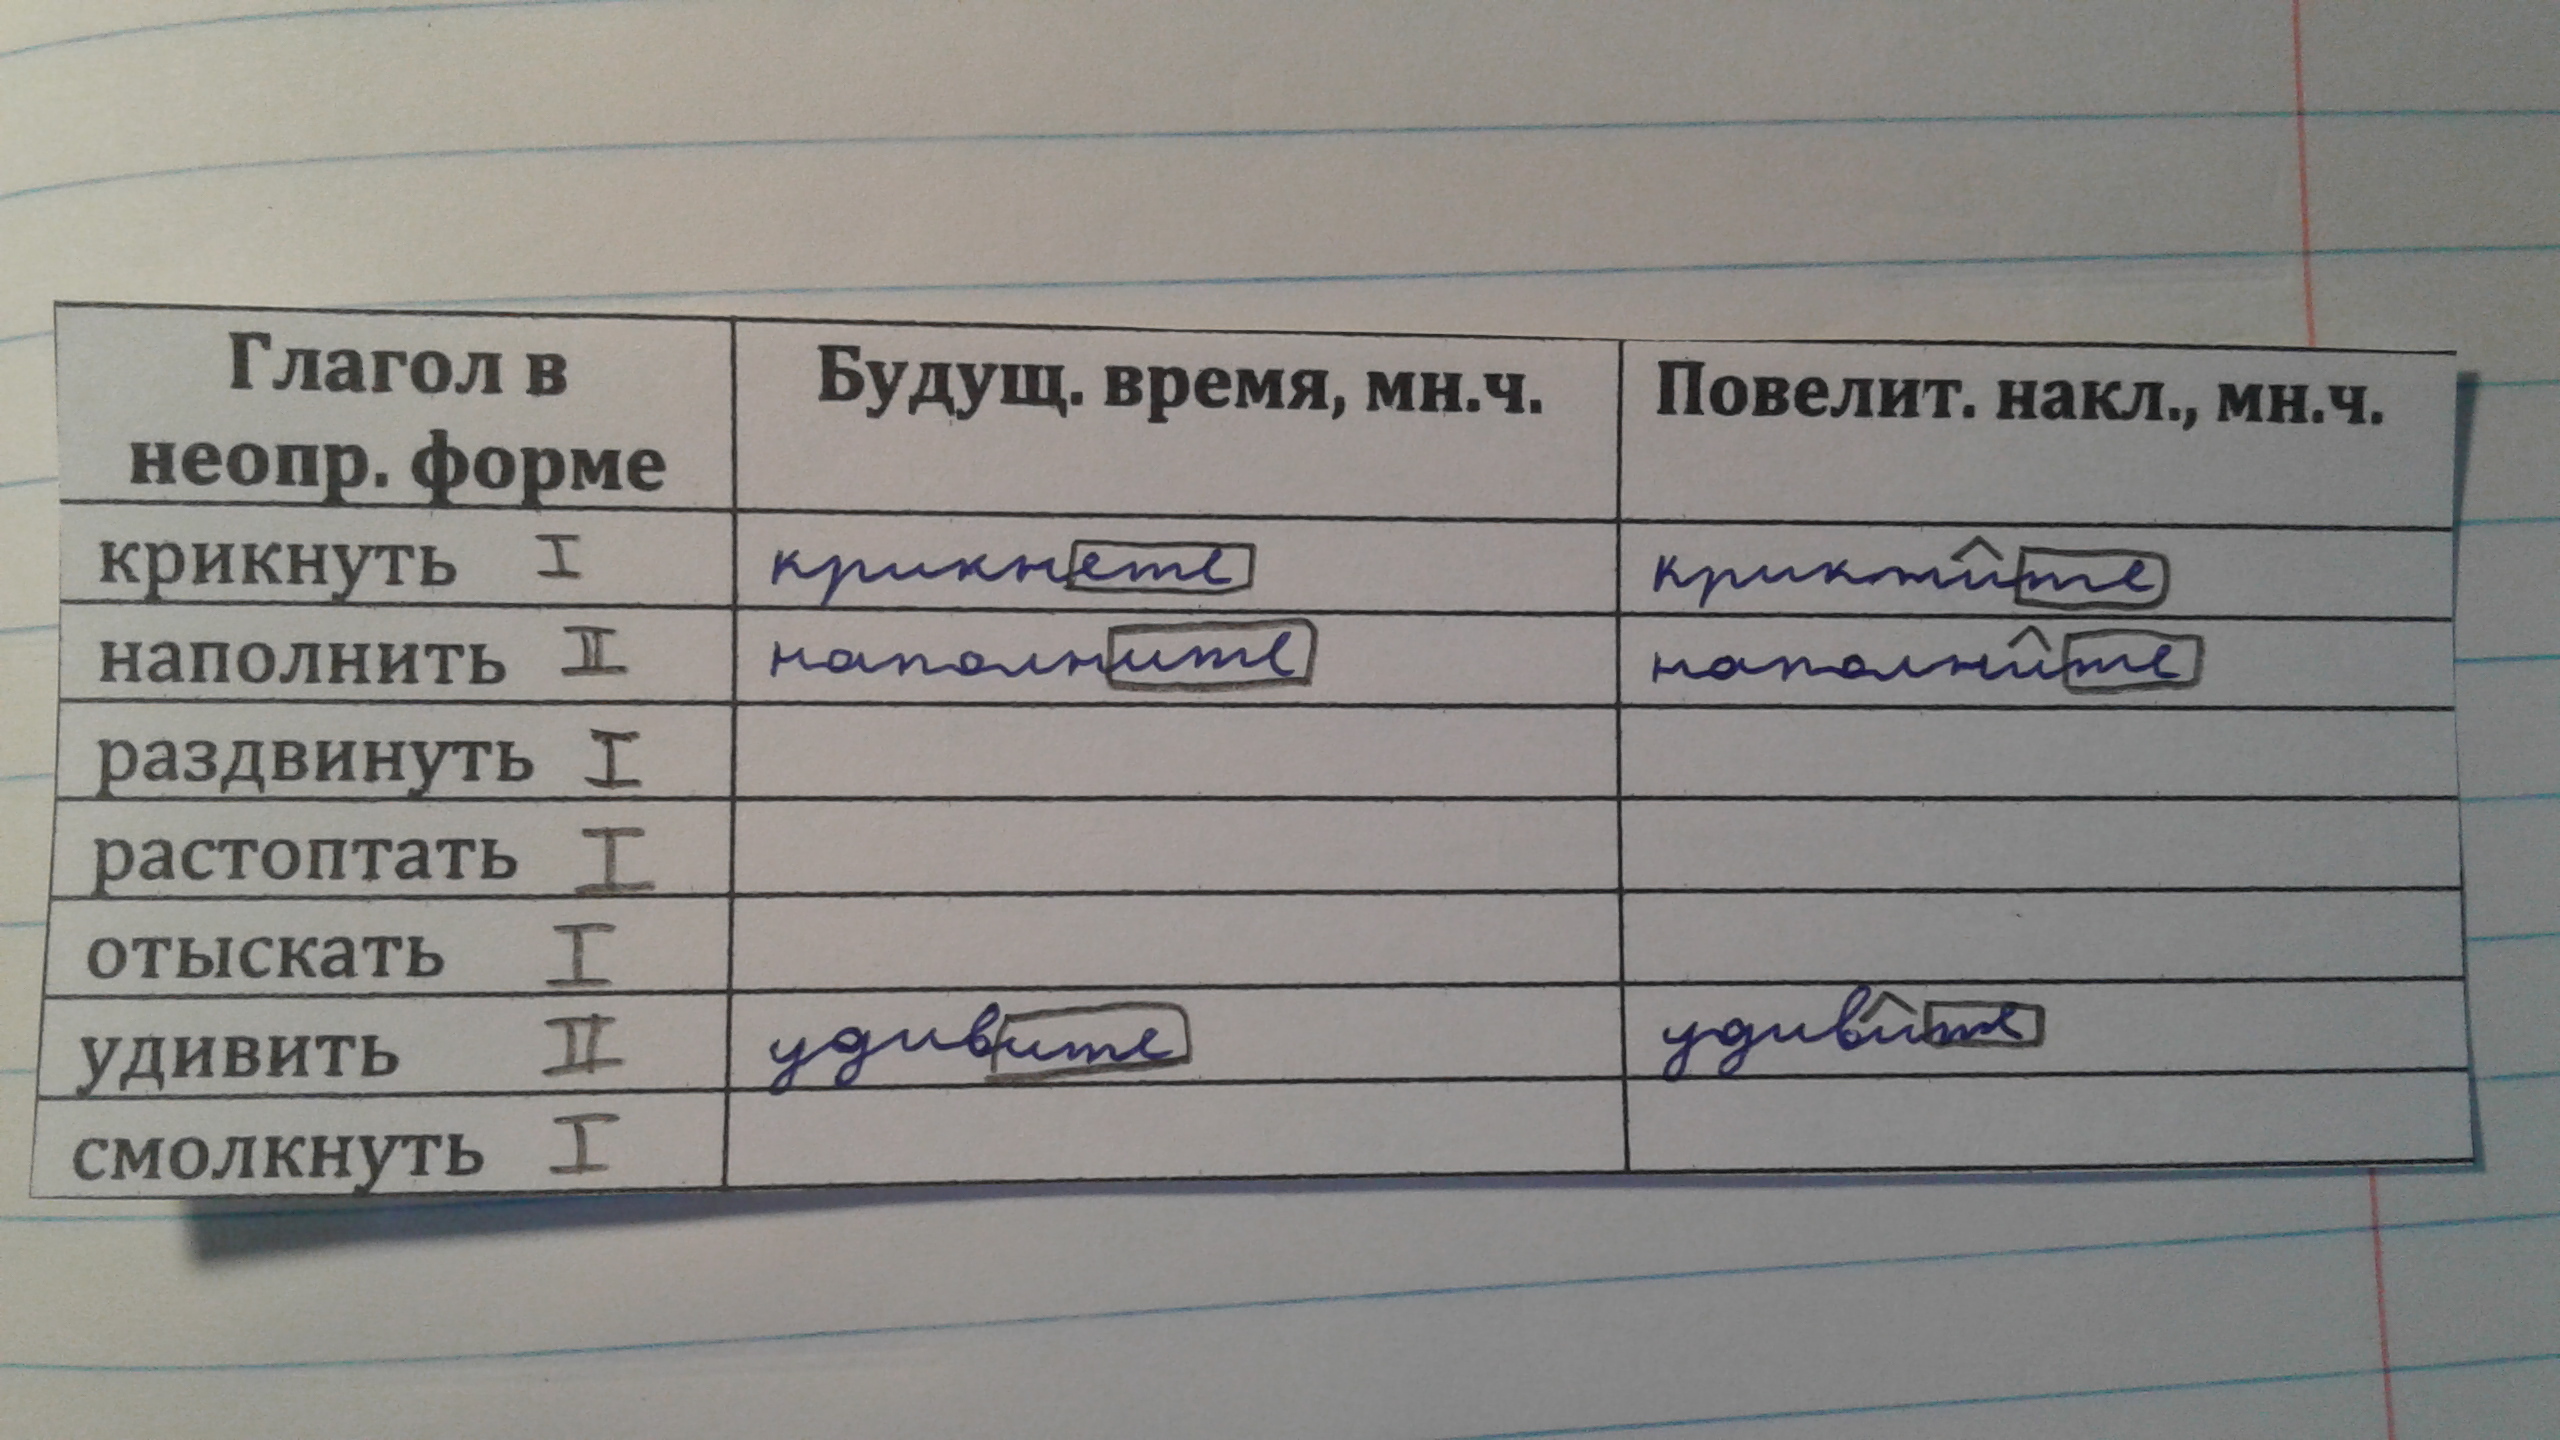 Глагол в неопр. форме Будущ. время, мн.ч. Повелит. накл., мн.ч.
крикнуть I крикнете крикните
наполнить II наполните наполните
раздвинуть I
растоптать I
отыскать I
удивить II удивите удивите
смолкнуть I